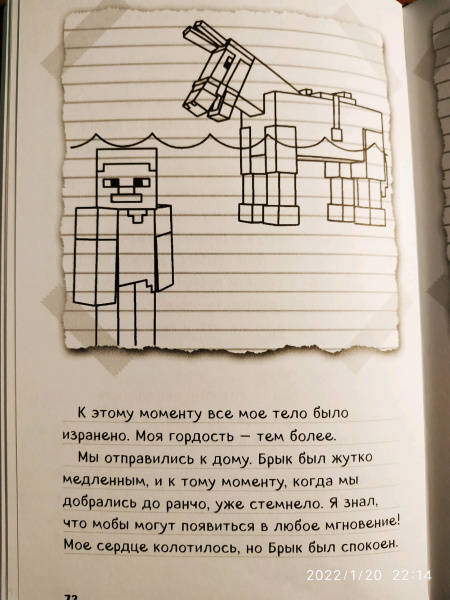 К этому моменту все мое тело было
изранено. Моя гордость – тем более.
Мы отправились к дому. Брык был жутко
медленным, и к тому моменту, когда мы
добрались до ранчо, уже стемнело. Я знал,
что мобы могут появиться в любое мгновение!
Мое сердце колотилось, но Брык был спокоен.
2022/1/20 22:14